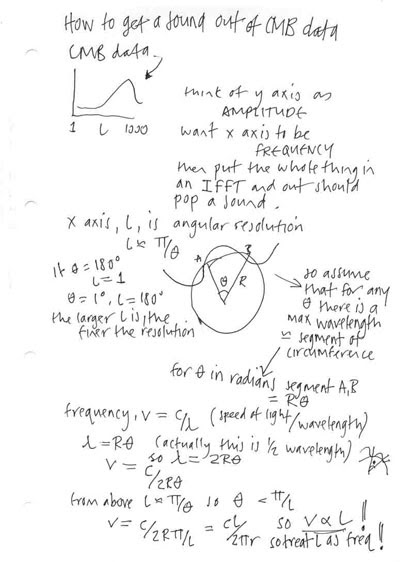 How to get a sound out of CMB data
CMB data.
think of y axis as
AMPLITUDE
1 L 1000
want x axis to be
FREQUENCY
then put the whole thing in
an IFFT and out should
pop a sound.
x axis, L, is angular resolution
L ∝ π/θ
A B
θ R
if θ = 180°
L = 1
θ = 1°, L = 180°
the larger L is, the
finer the resolution
so assume
that for any
θ there is a
max wavelength
= segment of
circumference
for θ in radians segment A,B
= Rθ
frequency, ν = c/λ (speed of light/wavelength)
λ = Rθ (actually this is ½ wavelength)
so λ = 2Rθ
ν = c/2Rθ
from above L ∝ π/θ so θ = π/L
ν = c/2Rπ/L = cL/2πr so ν ∝ L!!
so treat L as freq!